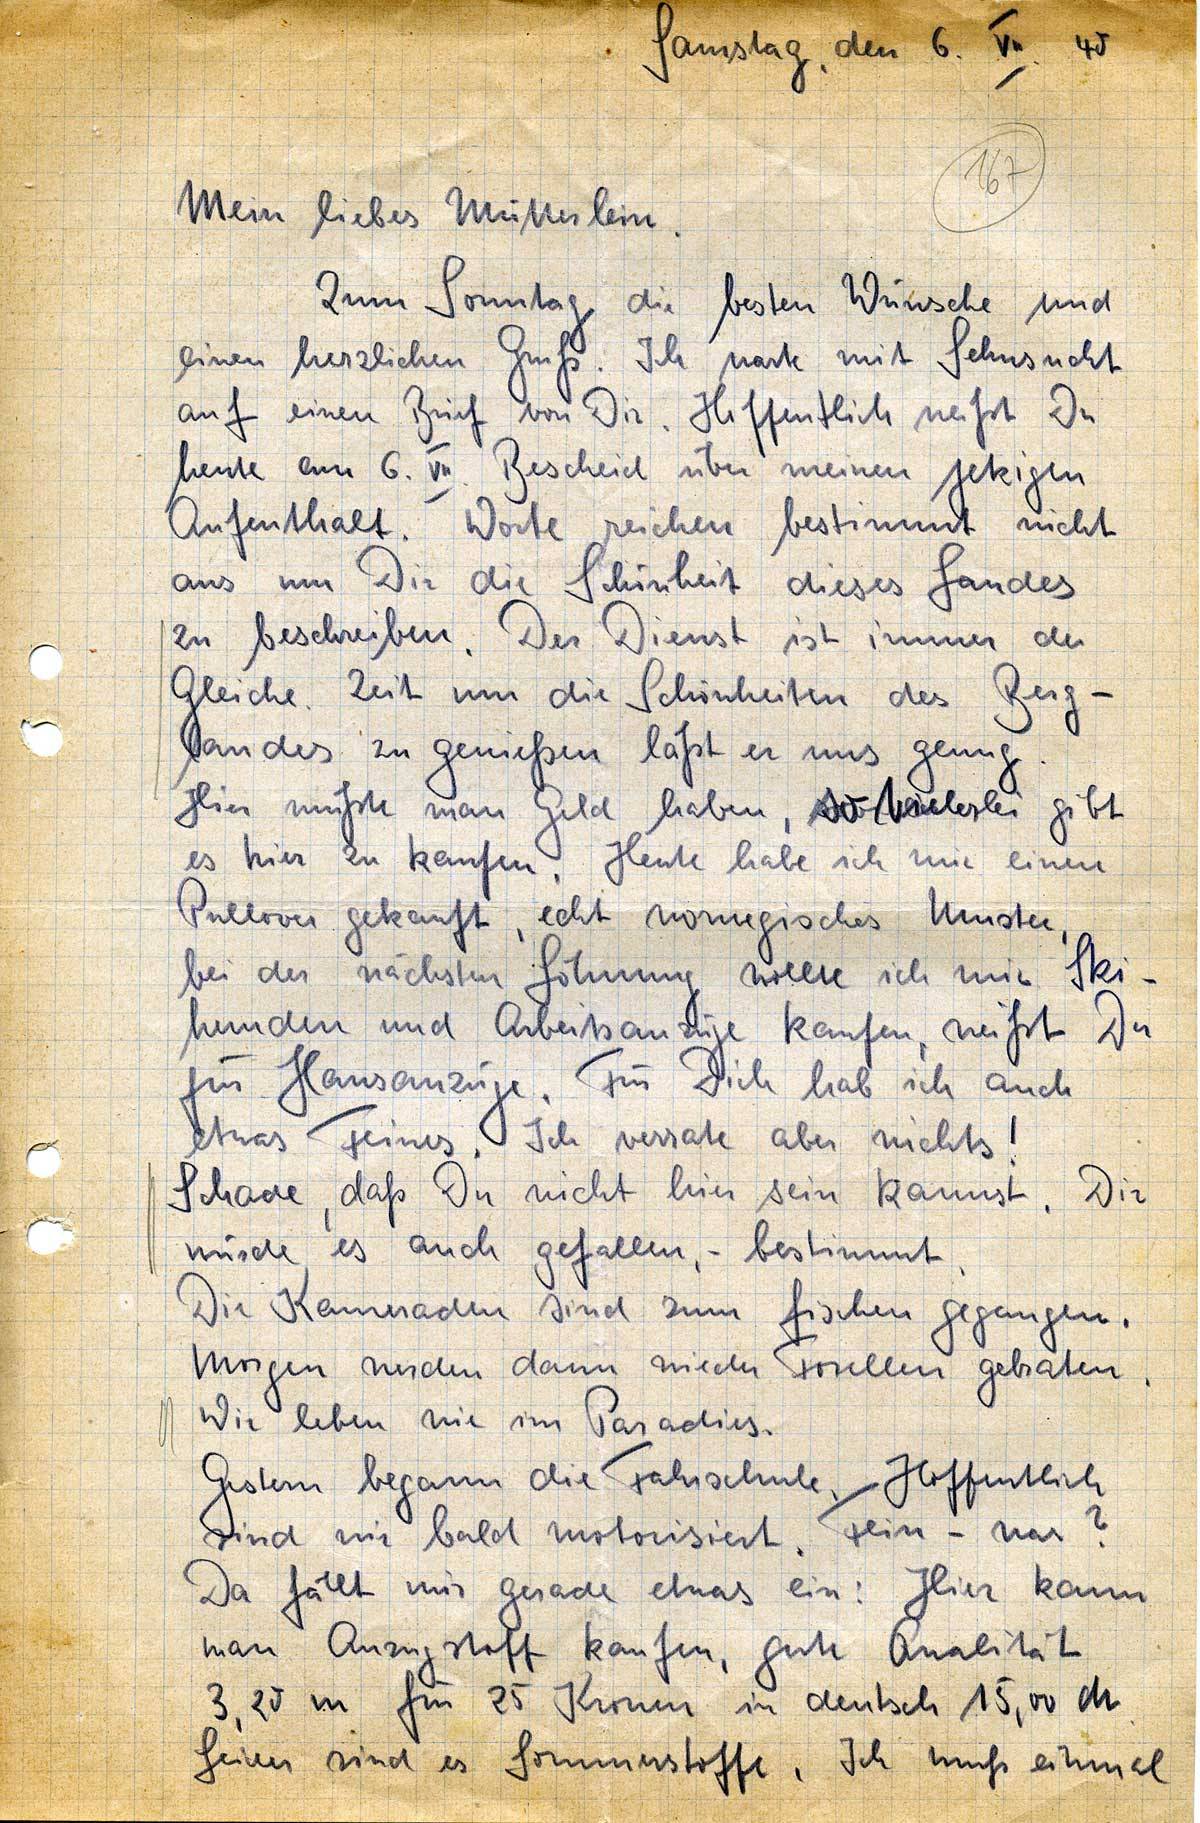 Samstag, den 6. VII. 40
167
Mein liebes Mütterlein.
Zum Sonntag die besten Wünsche und
einen herzlichen Gruß. Ich warte mit Sehnsucht
auf einen Brief von Dir. Hoffentlich weißt Du
heute am 6. VII. Bescheid über meinen jetzigen
Aufenthalt. Worte reichen bestimmt nicht
aus um Dir die Schönheit dieses Landes
zu beschreiben. Der Dienst ist immer der
Gleiche. Zeit um die Schönheiten des Berg-
landes zu genießen läßt er uns genug.
Hier müßte man Geld haben, so vielerlei gibt
es hier zu kaufen. Heute habe ich mir einen
Pullover gekauft, echt norwegisches Muster,
bei der nächsten Löhnung wollte ich mir Ski-
hemden und Arbeitsanzüge kaufen, weißt Du
für Hausanzüge. Für Dich hab ich auch
etwas Feines. Ich verrate aber nichts!
Schade, daß Du nicht hier sein kannst. Dir
würde es auch gefallen, - bestimmt.
Die Kameraden sind zum fischen gegangen.
Morgen werden dann wieder Forellen gebraten.
Wir leben wie im Paradies.
Gestern begann die Fahrschule. Hoffentlich
sind wir bald motorisiert. Fein - was?
Da fällt mir gerade etwas ein: Hier kann
man Anzugstoff kaufen, gute Qualität
3,20 m für 25 Kronen in deutsch 15,00 M
Leider sind es Sommerstoffe. Ich muß einmal